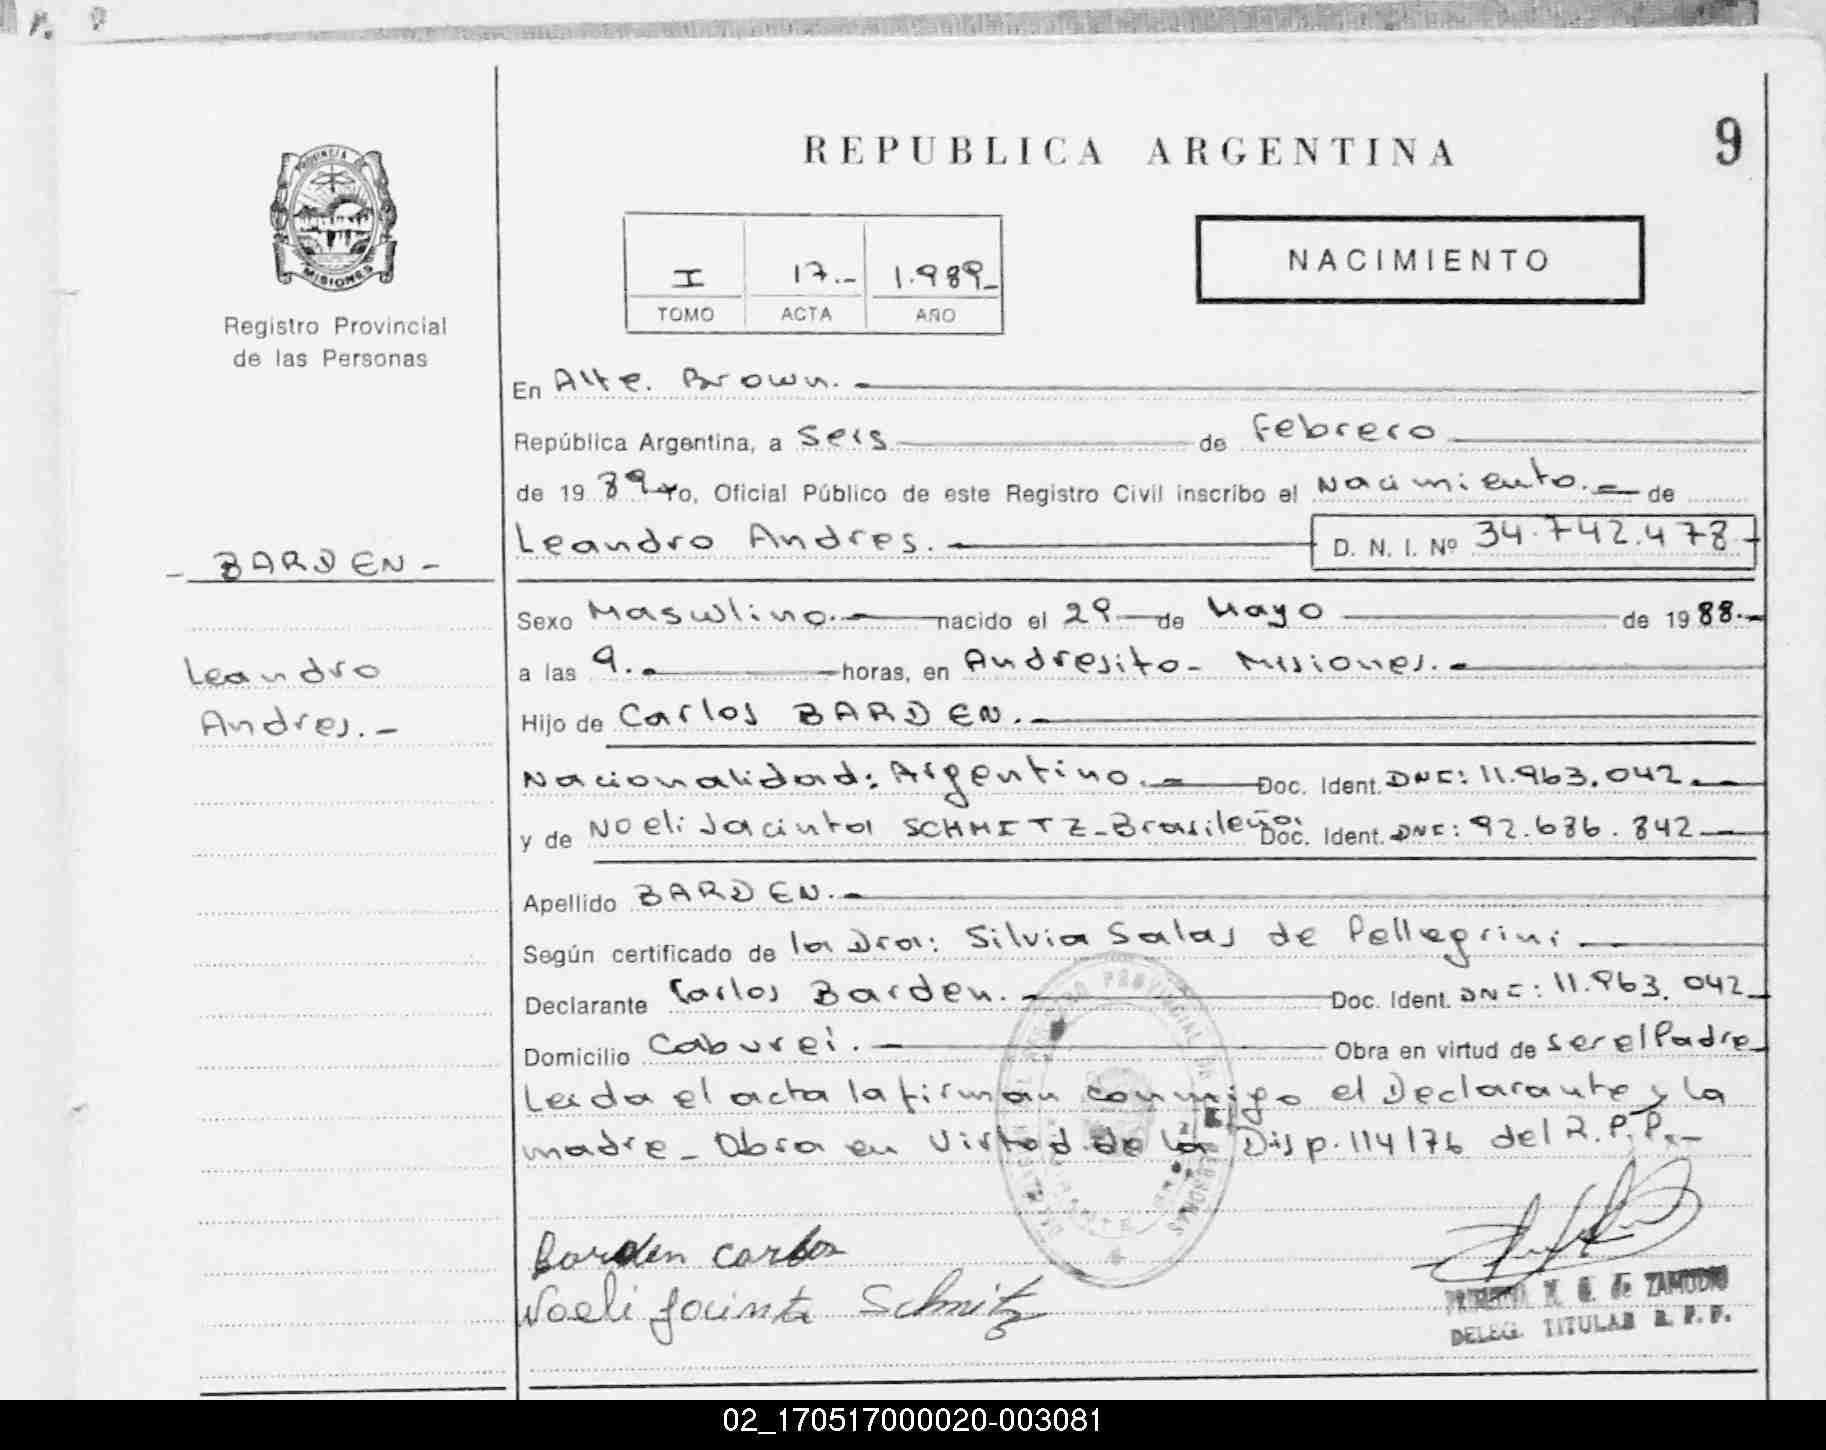 P. 9
REPUBLICA ARGENTINA
9
PROVINCIA
MISIONES
Registro Provincial
de las Personas
I 17.- 1.989-
TOMO ACTA AÑO
NACIMIENTO
En Alte. Brown.
República Argentina, a Seis de Febrero
de 19 89 Yo, Oficial Público de este Registro Civil inscribo el Nacimiento. de
Leandro Andres. D. N. I. Nº 34.742.478
- BARDEN -
Sexo Masculino. nacido el 29 de Mayo de 1988.-
Leandro
Andres.-
a las 9. horas, en Andresito - Misiones.
Hijo de Carlos BARDEN.
Nacionalidad: Argentino. Doc. Ident. DNI: 11.963.042.
y de Noeli Jacinta SCHMITZ - Brasileña. Doc. Ident. DNI: 92.686.842
Apellido BARDEN.
Según certificado de la Dra: Silvia Salas de Pellegrini
Declarante Carlos Barden. Doc. Ident. DNI: 11.963.042
Domicilio Caburei. Obra en virtud de ser el Padre
Leida el acta la firman conmigo el Declarante y la
madre - Obra en Virtud de la Disp. 114/76 del R.P.P.-
REGISTRO PROVINCIAL DE LAS PERSONAS
Barden Carlos
Noeli Jacinta Schmitz
de ZAMUDIO
DELEG. TITULAR R. P. P.
02_170517000020-003081